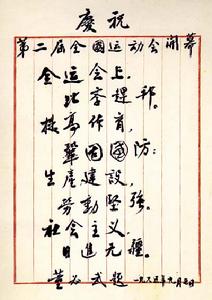 慶祝
第二届全國运动会開幕
全运会上，
比学趕邦。
高体育，
鞏固國防：
生產建設，
劳動堅強。
社會主义，
日進无疆。
董必武题 一九六五年九月日